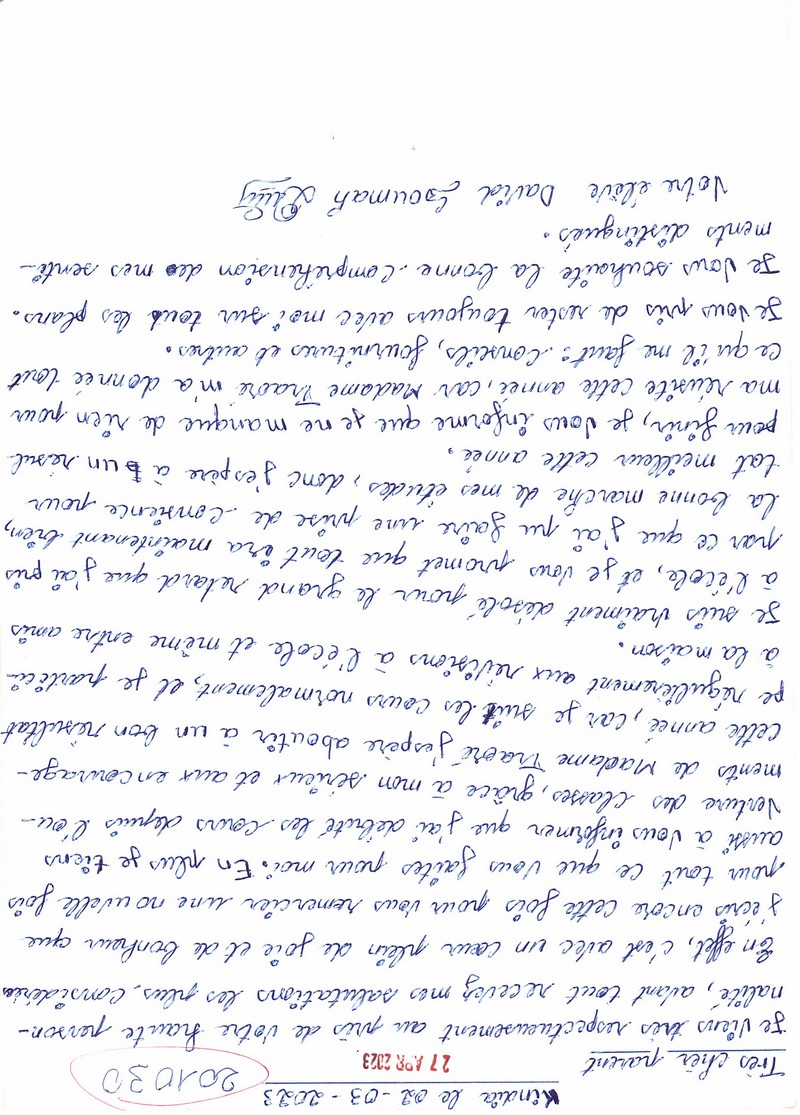 Kindia le 02-03-2023
201030
Très chèr parent
27 APR 2023
Je viens très respectueusement au près de votre haute person-
nalité, avant tout recevez mes salutations les plus
En effet, c'est avec un cœur plein de joie et de bonheur que
j'écris encore cette fois pour vous remercier une nouvelle fois
pour tout ce que vous faites pour moi. En plus je tiens
aussi à vous informer que j'ai débuté les cours depuis l'ou-
verture des classes, grâce à mon sérieux et aux encourage-
ments de Madame Traoré j'espère aboutir à un bon résultat
cette année, car je suit les cours normalement, et je partici-
pe régulièrement aux révisions à l'école et même entre amis
à la maison.
Je suis vraiment désolé pour le grand retard que j'ai pris
à l'école, et je vous promet que tout ira maintenant bien,
par ce que j'ai pu faire une prise de consience pour
la bonne marche de mes études, donc j'espère à un résul-
tat meilleur cette année.
pour finir, je vous informe que je ne manque de rien pour
ma réusite cette année, car Madame Traoré m'a donnée tout
ce qu'il me faut: conseils, fournitures et autres.
Je vous pris de rester toujours avec moi sur tous les plans.
Je vous souhaite la bonne compréhension de mes senti-
ments distingués.
Votre élève David Soumah